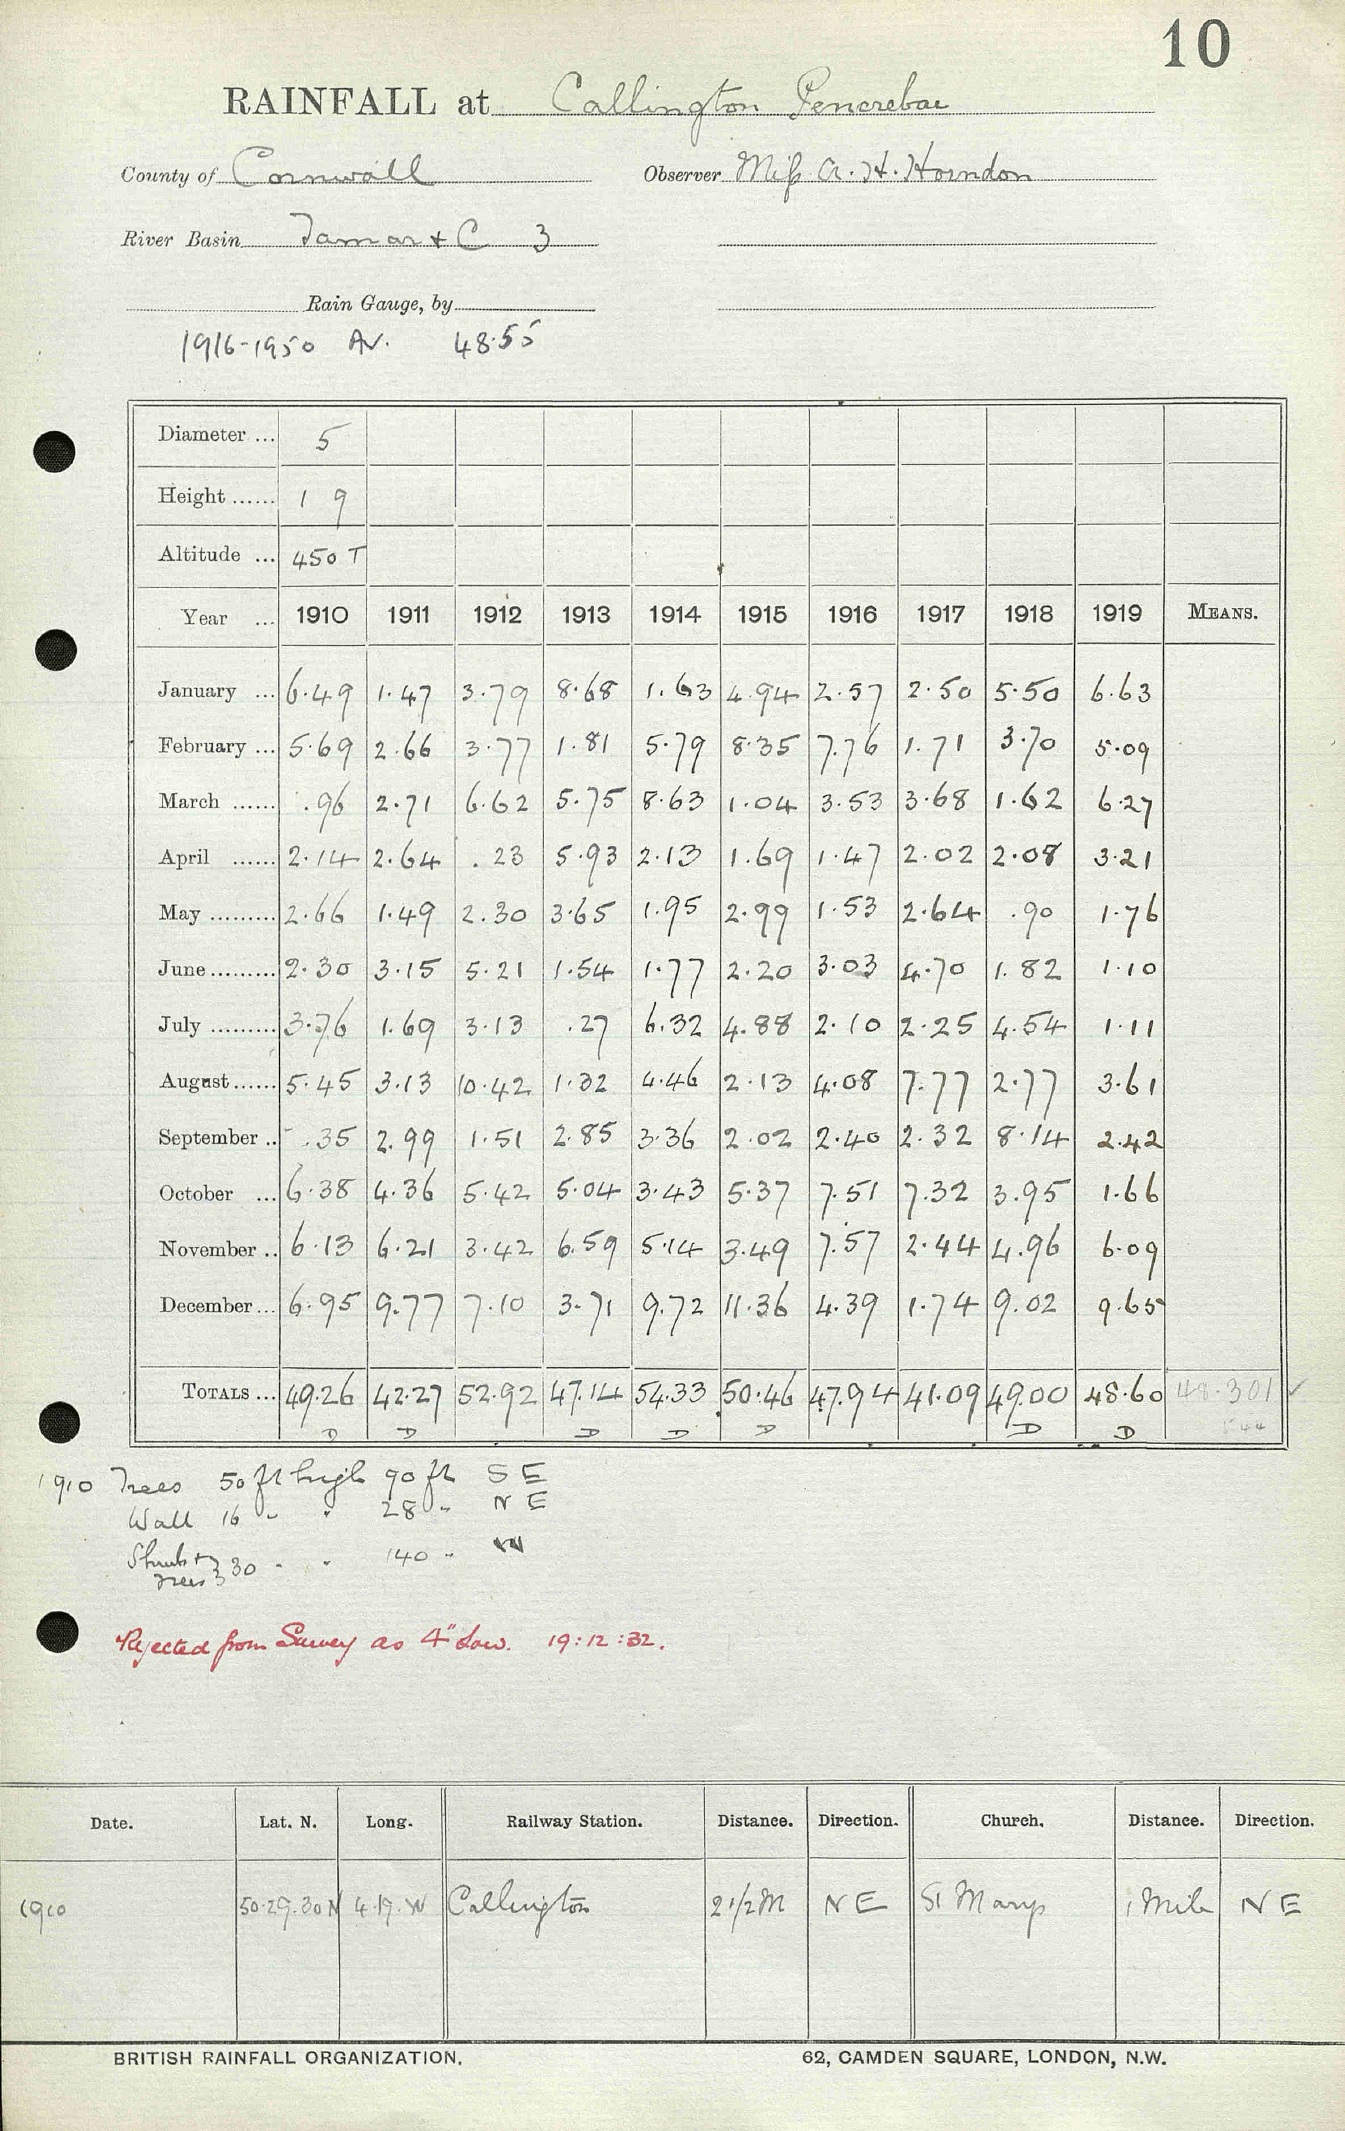 10
RAINFALL at Callington Pencrebar
County of Cornwall Observer Miss A. H. Horndon
River Basin Tamar + C 3
Rain Gauge, by
1916-1950 Av. 48.55
Diameter ... 5
Height ...... 1 9
Altitude ... 450 T
Year ... 1910 1911 1912 1913 1914 1915 1916 1917 1918 1919 MEANS.
January ... 6.49 1.47 3.79 8.68 1.63 4.94 2.57 2.50 5.50 6.63
February ... 5.69 2.66 3.77 1.81 5.79 8.35 7.76 1.71 3.70 5.09
March ...... .96 2.71 6.62 5.75 8.63 1.04 3.53 3.68 1.62 6.27
April ...... 2.14 2.64 .23 5.93 2.13 1.69 1.47 2.02 2.08 3.21
May ......... 2.66 1.49 2.30 3.65 1.95 2.99 1.53 2.64 .90 1.76
June ......... 2.30 3.15 5.21 1.54 1.77 2.20 3.03 4.70 1.82 1.10
July ......... 3.76 1.69 3.13 .27 6.32 4.88 2.10 2.25 4.54 1.11
August ...... 5.45 3.13 10.42 1.32 4.46 2.13 4.08 7.77 2.77 3.61
September .. .35 2.99 1.51 2.85 3.36 2.02 2.40 2.32 8.14 2.42
October ... 6.38 4.36 5.42 5.04 3.43 5.37 7.51 7.32 3.95 1.66
November .. 6.13 6.21 3.42 6.59 5.14 3.49 7.57 2.44 4.96 6.09
December ... 6.95 9.77 7.10 3.71 9.72 11.36 4.39 1.74 9.02 9.65
TOTALS ... 49.26 42.27 52.92 47.14 54.33 50.46 47.94 41.09 49.00 48.60 48.301 ✓
D D D D D D D
1910 Trees 50 ft high 90 ft S E
Wall 16 " " 28 " N E
Shrubs + Trees } 30 " " 140 " W
Rejected from Survey as 4" Low. 19:12:32.
Date. Lat. N. Long. Railway Station. Distance. Direction. Church. Distance. Direction.
1910 50.29.30 N 4.19.W Callington 2 1/2 M N E St Marys 1 Mile N E
BRITISH RAINFALL ORGANIZATION. 62, CAMDEN SQUARE, LONDON, N.W.